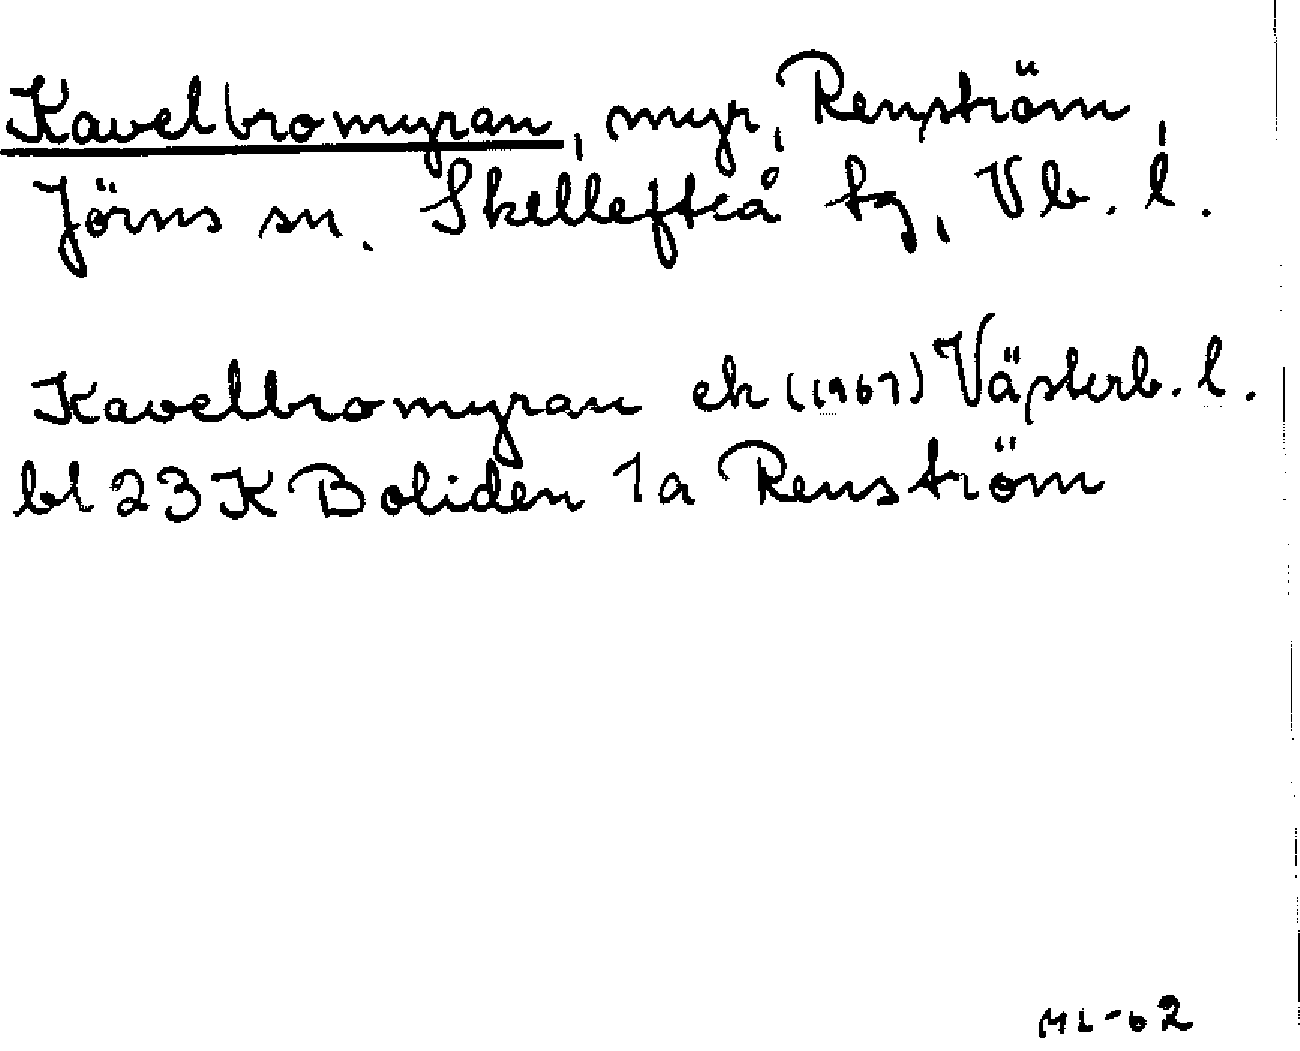 Kavelbromyran, myr, Renström,
Jörns sn. Skellefteå tg, Vb. l.
Kavelbromyran ek (1967) Västerb. l.
bl 23 K Boliden 1a Renström
ML-62